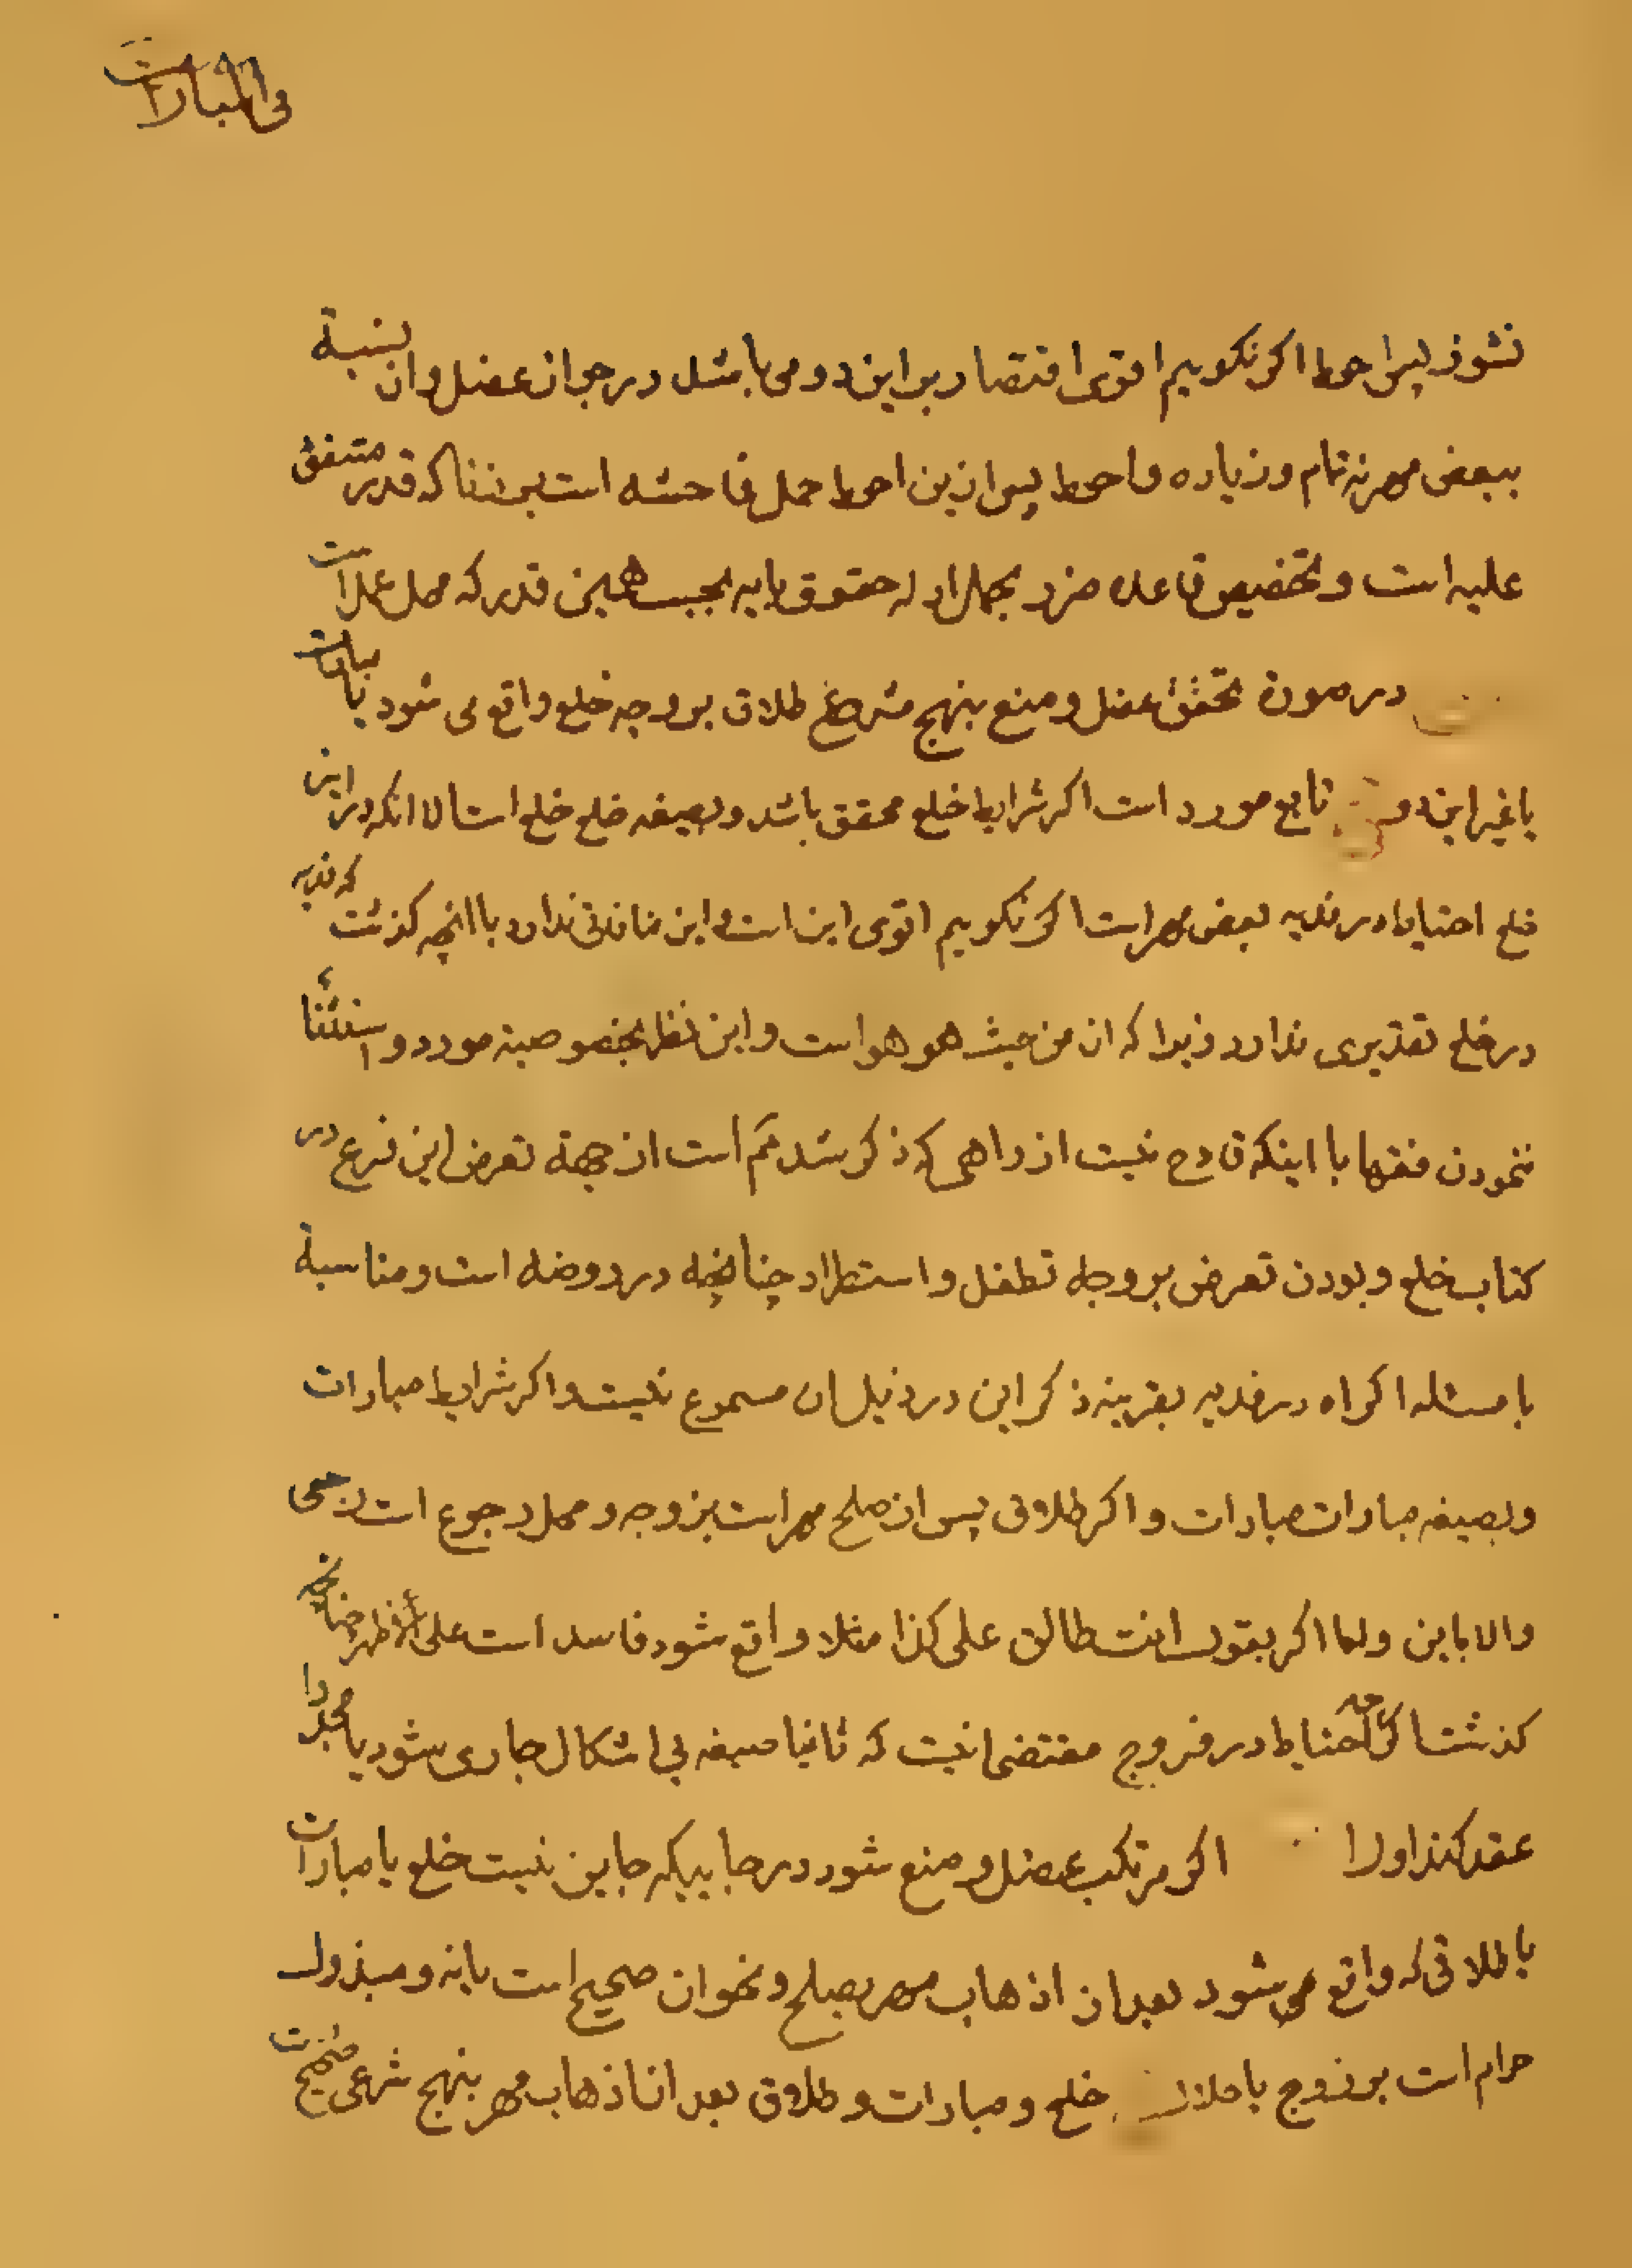 فی المبارات
نشوز پس احوط اکر نکوییم اقوی اقتصار بر این دو می باشد در جواز عضل و ان نسبة
ببعض مهر نه تمام و زیاده و احوط پس از این احوط حمل فاحشه است بر زنا که قدر متفق
علیه است و تخصیص قاعده ضرر بجمل ادله حقوق بایه بحسب همین قدر که محل عمل است
در صورة تحقق عضل و منع بنهج مشروع طلاق بر وجه خلع واقع می شود یا مبارات
یا غیر این دو تابع مورد است اکر شرایط خلع محقق باشد و بصیغه خلع خلع است الا انکه در این
خلع احتیاط در فدیه ببعض مهر است اکر نکوییم اقوی این است و این منافاتی ندارد با انچه کذشت که فدیه
در خلع تقدیری ندارد زیرا که ان من حیث هو هو است و این نظر بخصوصیة مورد و استثناء
ننمودن فقها با اینکه قادح نیست از راهی که ذکر شد نم است از جهة تعرض این فرع در
کتاب خلع و بودن تعرض بر وجه تطفل و استطراد چنانچه در روضه است و مناسبة
با مسئله اکراه در فدیه بقرینه ذکر این در ذیل ان مسموع نیست و اکر شرایط مبارات
و بصیغه مبارات مبارات و اکر طلاق پس از صلح مهر است بزوجه و محل رجوع است رجعی
والا باین و اما اکر بقول انت طالق علی کذا مثلا واقع شود فاسد است علی الاظهر چنانچه
کذشت اکرچه احتیاط در فروج مقتضی انیست که ثانیا صیغه بی اشکال جاری شود یا مجددا
عقد کنند اورا اکر مرتکب عضل و منع شود در جاییکه جایز نیست خلع یا مبارات
یا طلاقی که واقع می شود بعد از اذهاب مهر بصلح و نحو ان صحیح است یا نه و مبذول
حرام است بر زوج یا حلال خلع و مبارات و طلاق بعد از اذهاب مهر بنهج شرعی صحیح است